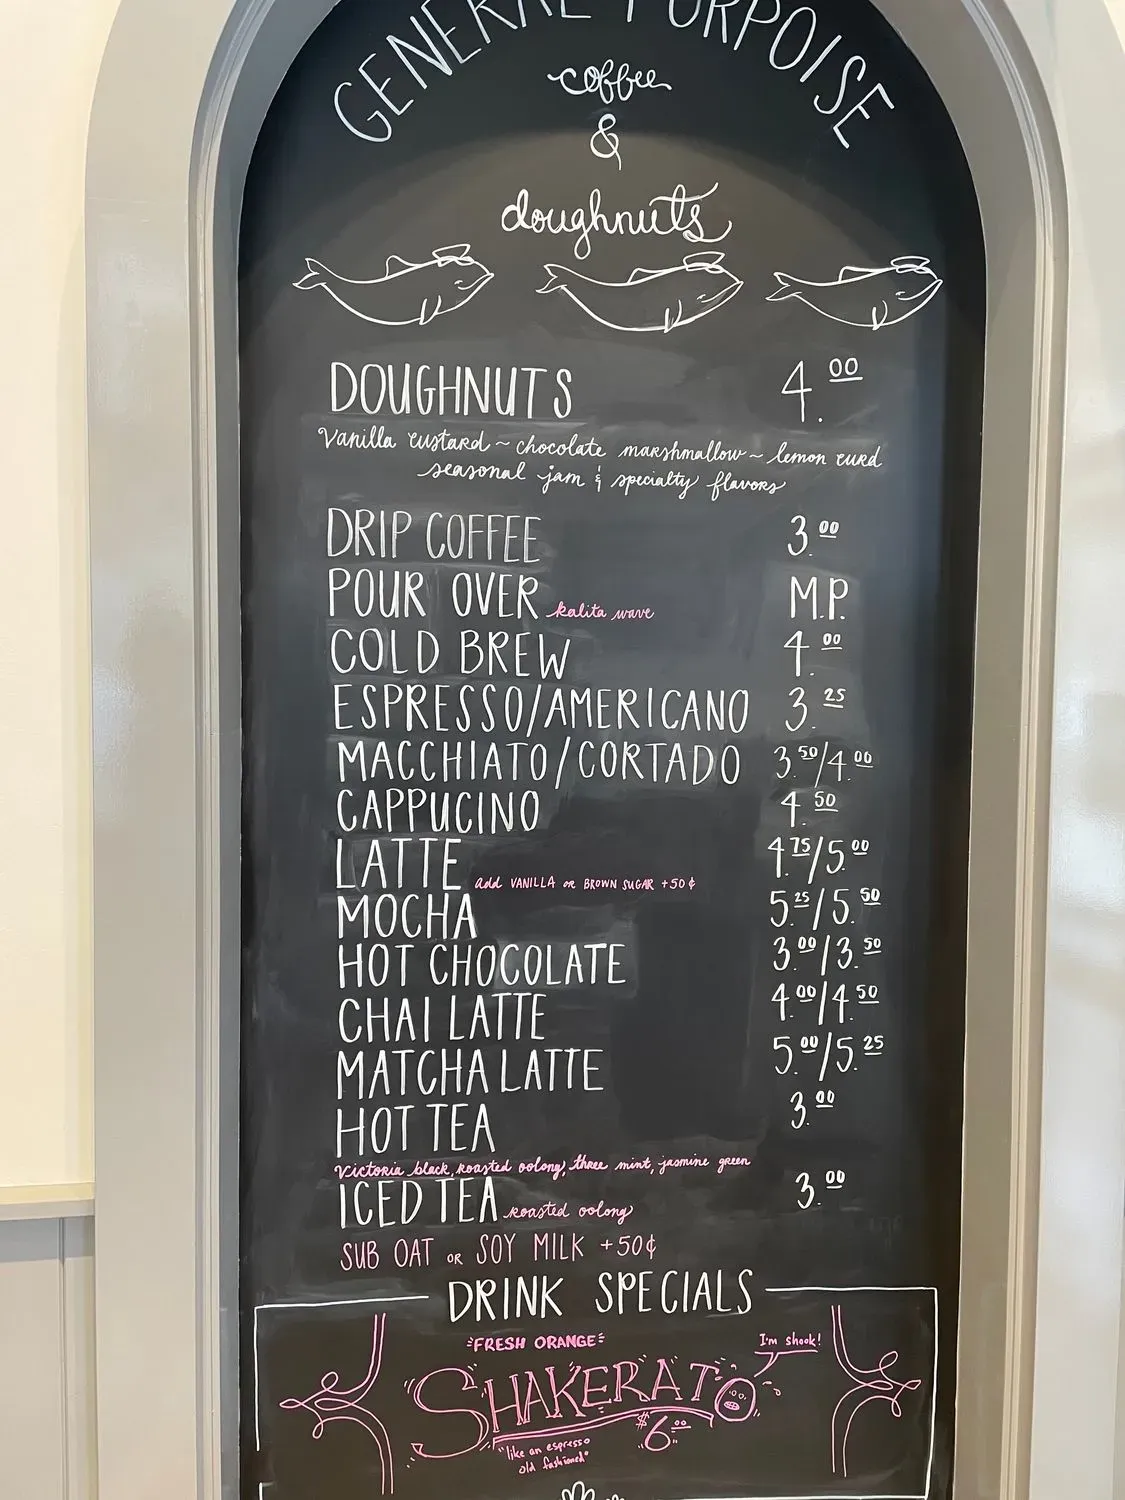 GENERAL PORPOISE
coffee
&
doughnuts
DOUGHNUTS 4.00
Vanilla custard ~ chocolate marshmallow ~ lemon curd
seasonal jam & specialty flavors
DRIP COFFEE 3.00
POUR OVER kalita wave M.P.
COLD BREW 4.00
ESPRESSO/AMERICANO 3.25
MACCHIATO/CORTADO 3.50/4.00
CAPPUCINO 4.50
LATTE add VANILLA or BROWN SUGAR +50¢ 4.75/5.00
MOCHA 5.25/5.50
HOT CHOCOLATE 3.00/3.50
CHAI LATTE 4.00/4.50
MATCHA LATTE 5.00/5.25
HOT TEA 3.00
Victoria black, roasted oolong, three mint, jasmine green
ICED TEA roasted oolong 3.00
SUB OAT or SOY MILK +50¢
DRINK SPECIALS
FRESH ORANGE
I'm shook!
SHAKERATO
$6.00
"like an espresso
old fashioned"